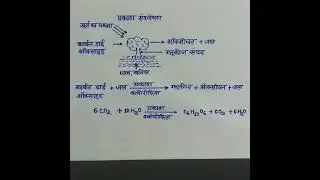 प्रकाश संश्लेषण
सूर्य का प्रकाश
कार्बन डाई
ऑक्साइड
ऑक्सीजन + जल
ग्लूकोज
जल, खनिज
कार्बन डाई
ऑक्साइड + जल प्रकाश क्लोरोफिल ग्लूकोज + ऑक्सीजन + जल
6 CO2 + 12 H2O प्रकाश क्लोरोफिल C6H12O6 + CO2 + 6H2O